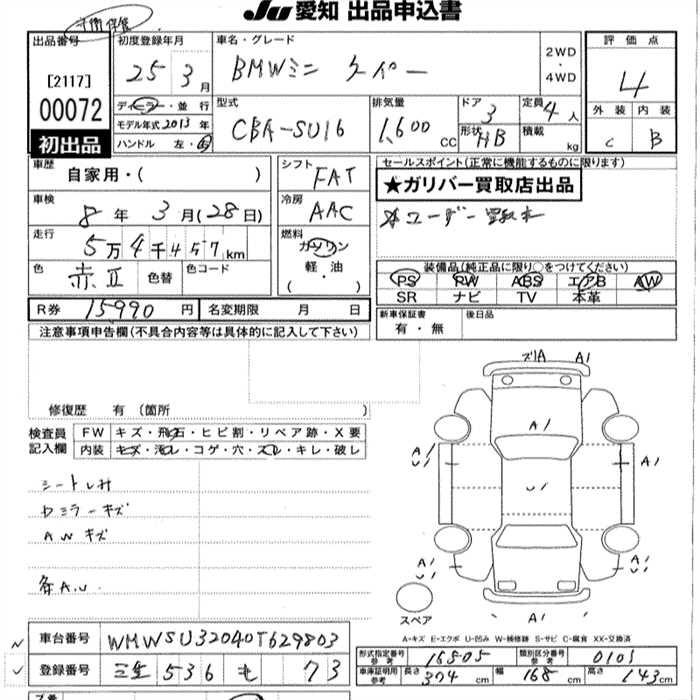 JU 愛知 出品申込書
出品番号 初度登録年月 車名・グレード 2WD・4WD 評価点
[2117] 25 3月 BMWミニ クーパー 4
00072 ディーラー・並行 型式 排気量 ドア 3 定員 4人 外装 内装
モデル年式 2013年 CBA-SU16 1,600cc 形状 HB 積載 kg C B
初出品 ハンドル 左・右
車歴 自家用・( ) シフト FAT セールスポイント(正常に機能するものに限ります)
車検 8年3月(28日) 冷房 AAC ★ガリバー買取店出品
走行 5万4千457km 燃料 ガソリン ☆ユーザー買取車
軽・油
( )
色 赤II 色替 色コード 装備品(純正品に限り○をつけてください)
PS PW ABS エアB AW
SR ナビ TV 本革
R券 15990円 名変期限 月 日 新車保証書 有・無 後日品
注意事項申告欄(不具合内容等は具体的に記入して下さい)
修復歴 有 (箇所
検査員 FW キズ・飛石・ヒビ割・リペア跡・X要
記入欄 内装 キズ・汚レ・コゲ・穴・スレ・キレ・破レ
シートしみ
ドミラーキズ
AWキズ
各A.U.
ズリA A1
A1
A1 U1 U1 A1
A1 U1 A1 U1
A1
スペア
A-キズ E-エクボ U-凹み W-補修跡 S-サビ C-腐食 XX-交換済
車台番号 WMWSU32040T629803
登録番号 三重 536 も 73
形式指定番号 参考 16505 類別区分番号 参考 0101
車庫証明用 参考 長さ 374cm 幅 168cm 高さ 143cm